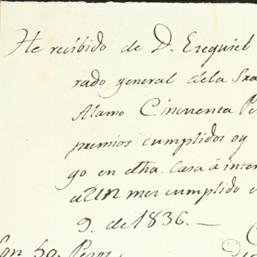 He recibido de D. Ezequiel
rado general dela Sra
Alamo Cincuenta Pe
premios cumplidos oy
go en dha. Casa á inter
mes cumplido
9. de 1836.—
Son 50. Pesos